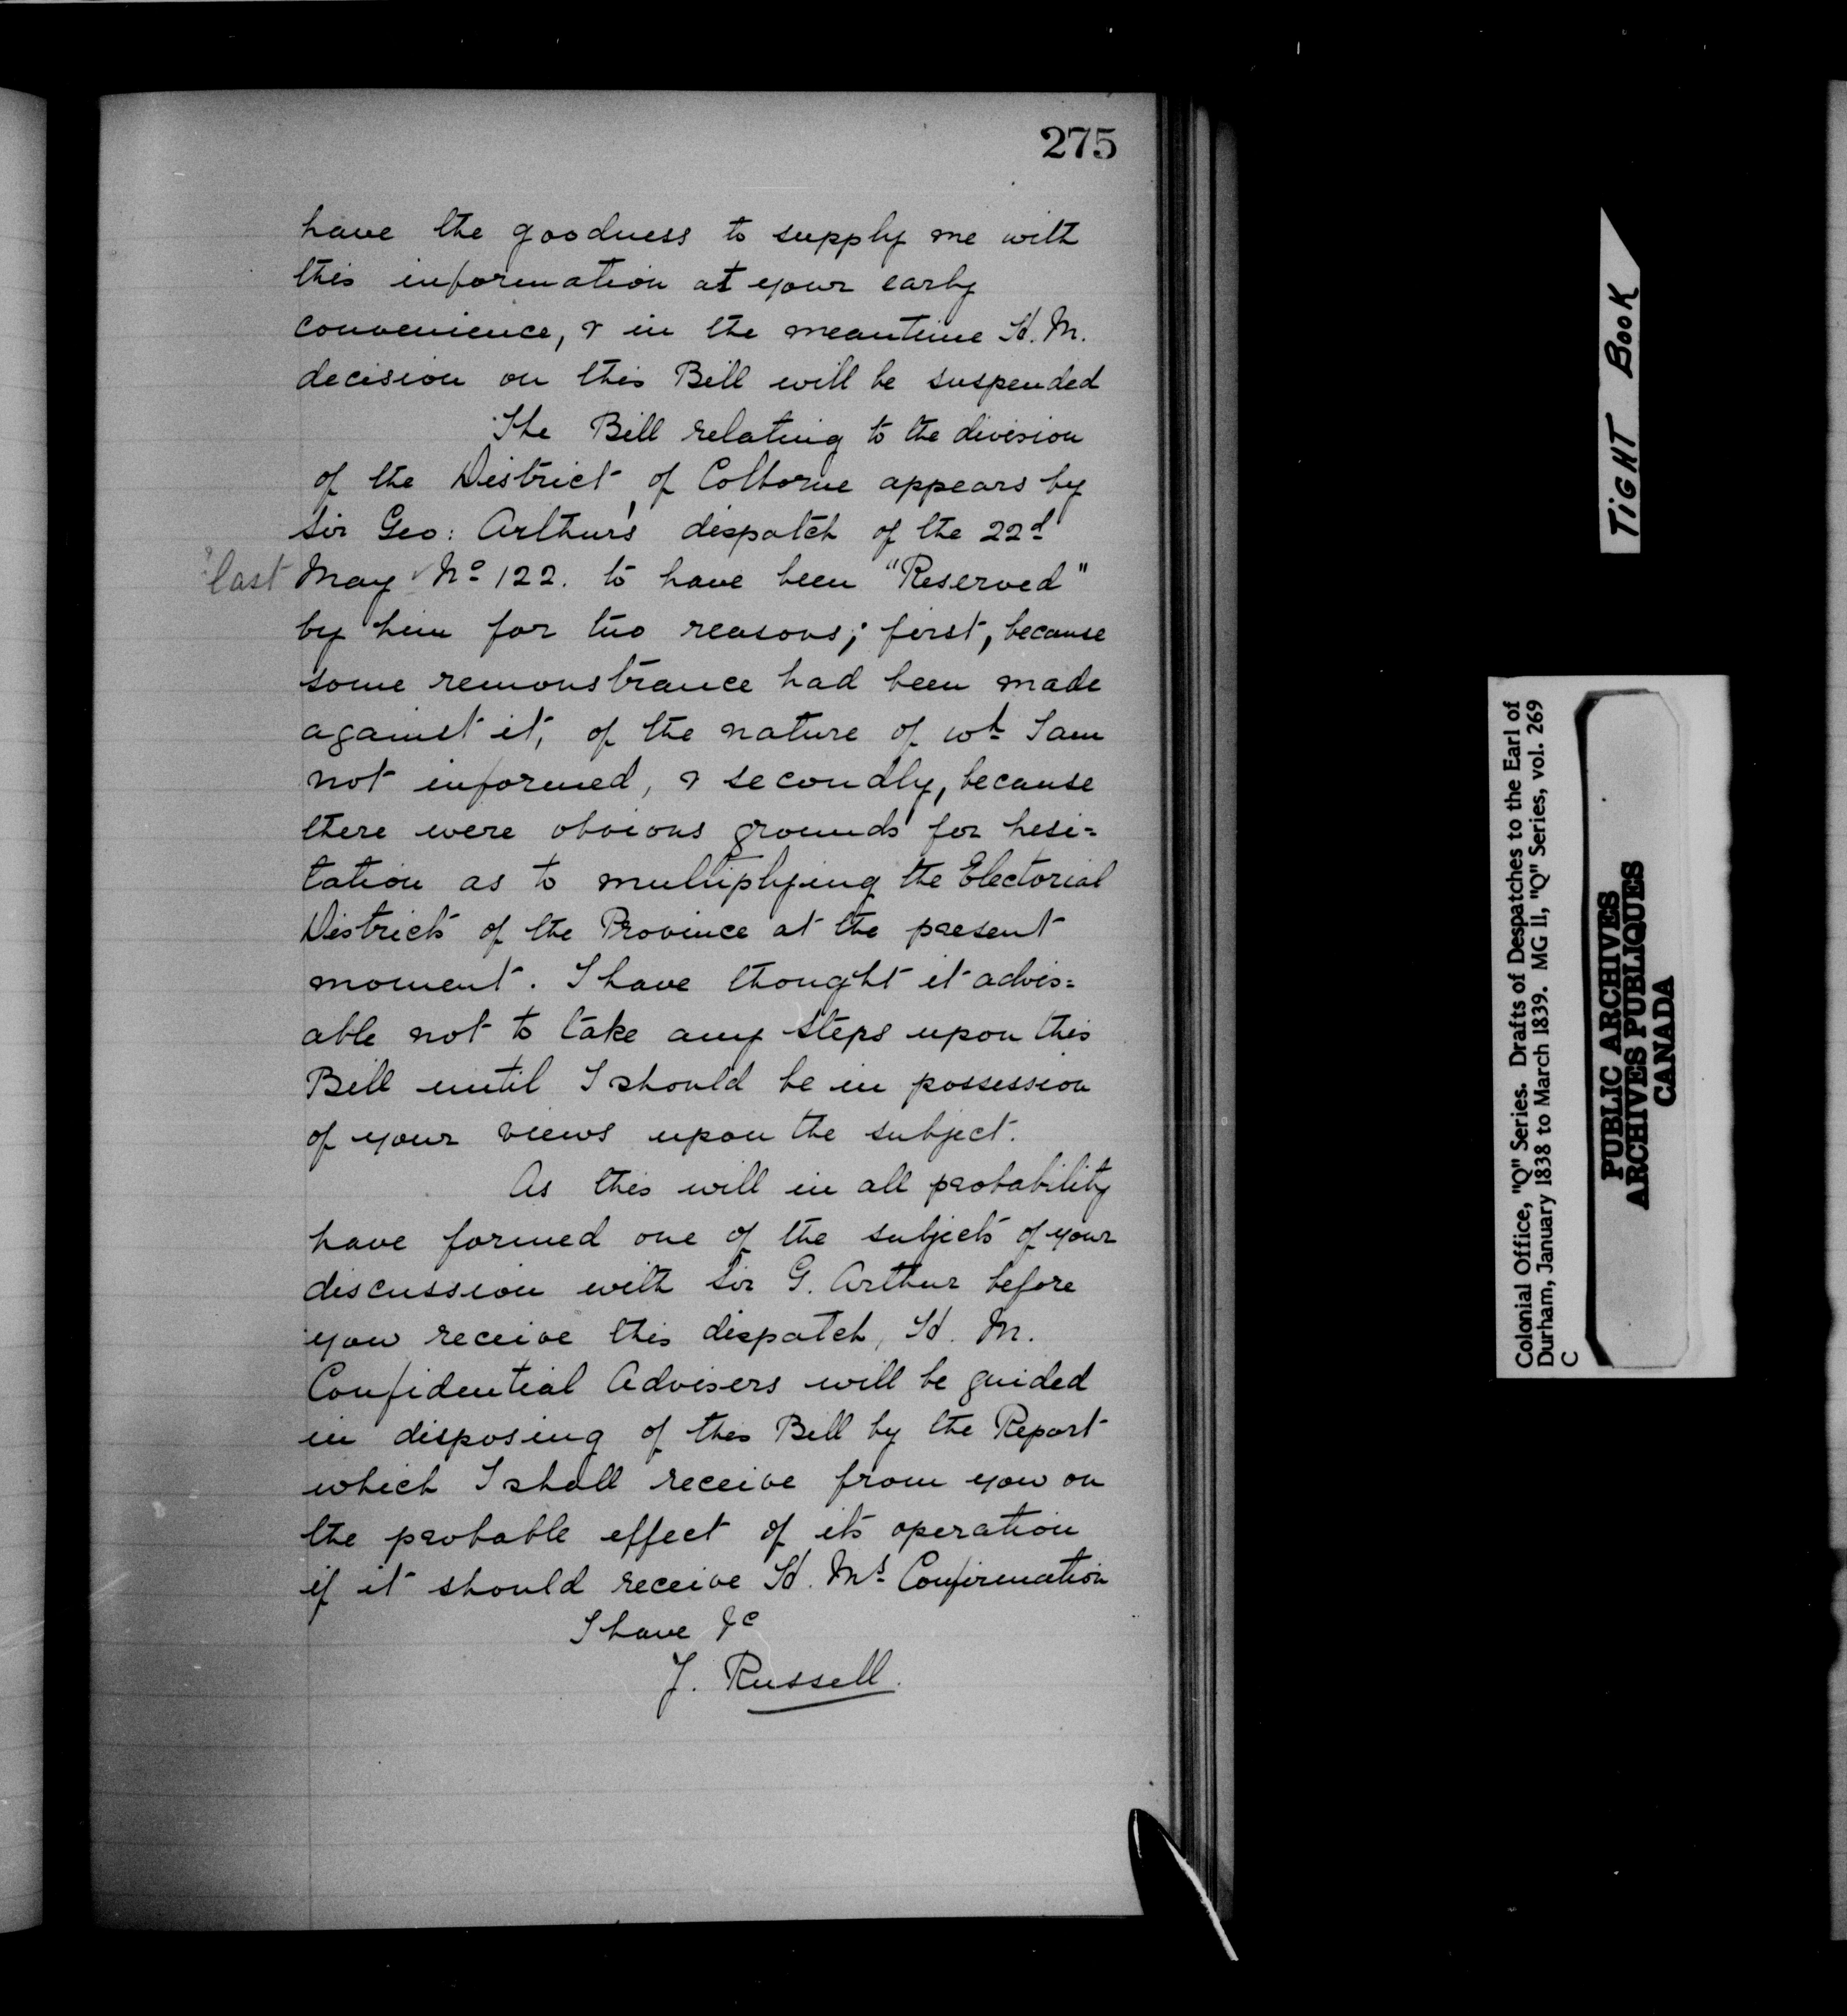 275
have the goodness to supply me with
this information at your early
convenience, & in the meantime H. M.
decision on this Bill will be suspended
The Bill relating to the division
of the District of Colborne appears by
Sir Geo: Arthur's dispatch of the 22d
last May No 122. to have been "Reserved"
by him for two reasons; first, because
some remonstrance had been made
against it, of the nature of wh I am
not informed, & secondly, because
there were obvious grounds for hesi=
tation as to multiplying the Electorial
Districts of the Province at the present
moment. I have thought it advis=
able not to take any steps upon this
Bill until I should be in possession
of your views upon the subject.
As this will in all probability
have formed one of the subjects of your
discussion with Sir G. Arthur before
you receive this dispatch, H. M.
Confidential Advisers will be guided
in disposing of this Bill by the Report
which I shall receive from you on
the probable effect of its operation
if it should receive H. Ms Confirmation
I have &c
J. Russell.
TIGHT BOOK
Colonial Office, "Q" Series. Drafts of Despatches to the Earl of
Durham, January 1838 to March 1839. MG 11, "Q" Series, vol. 269
C
PUBLIC ARCHIVES
ARCHIVES PUBLIQUES
CANADA